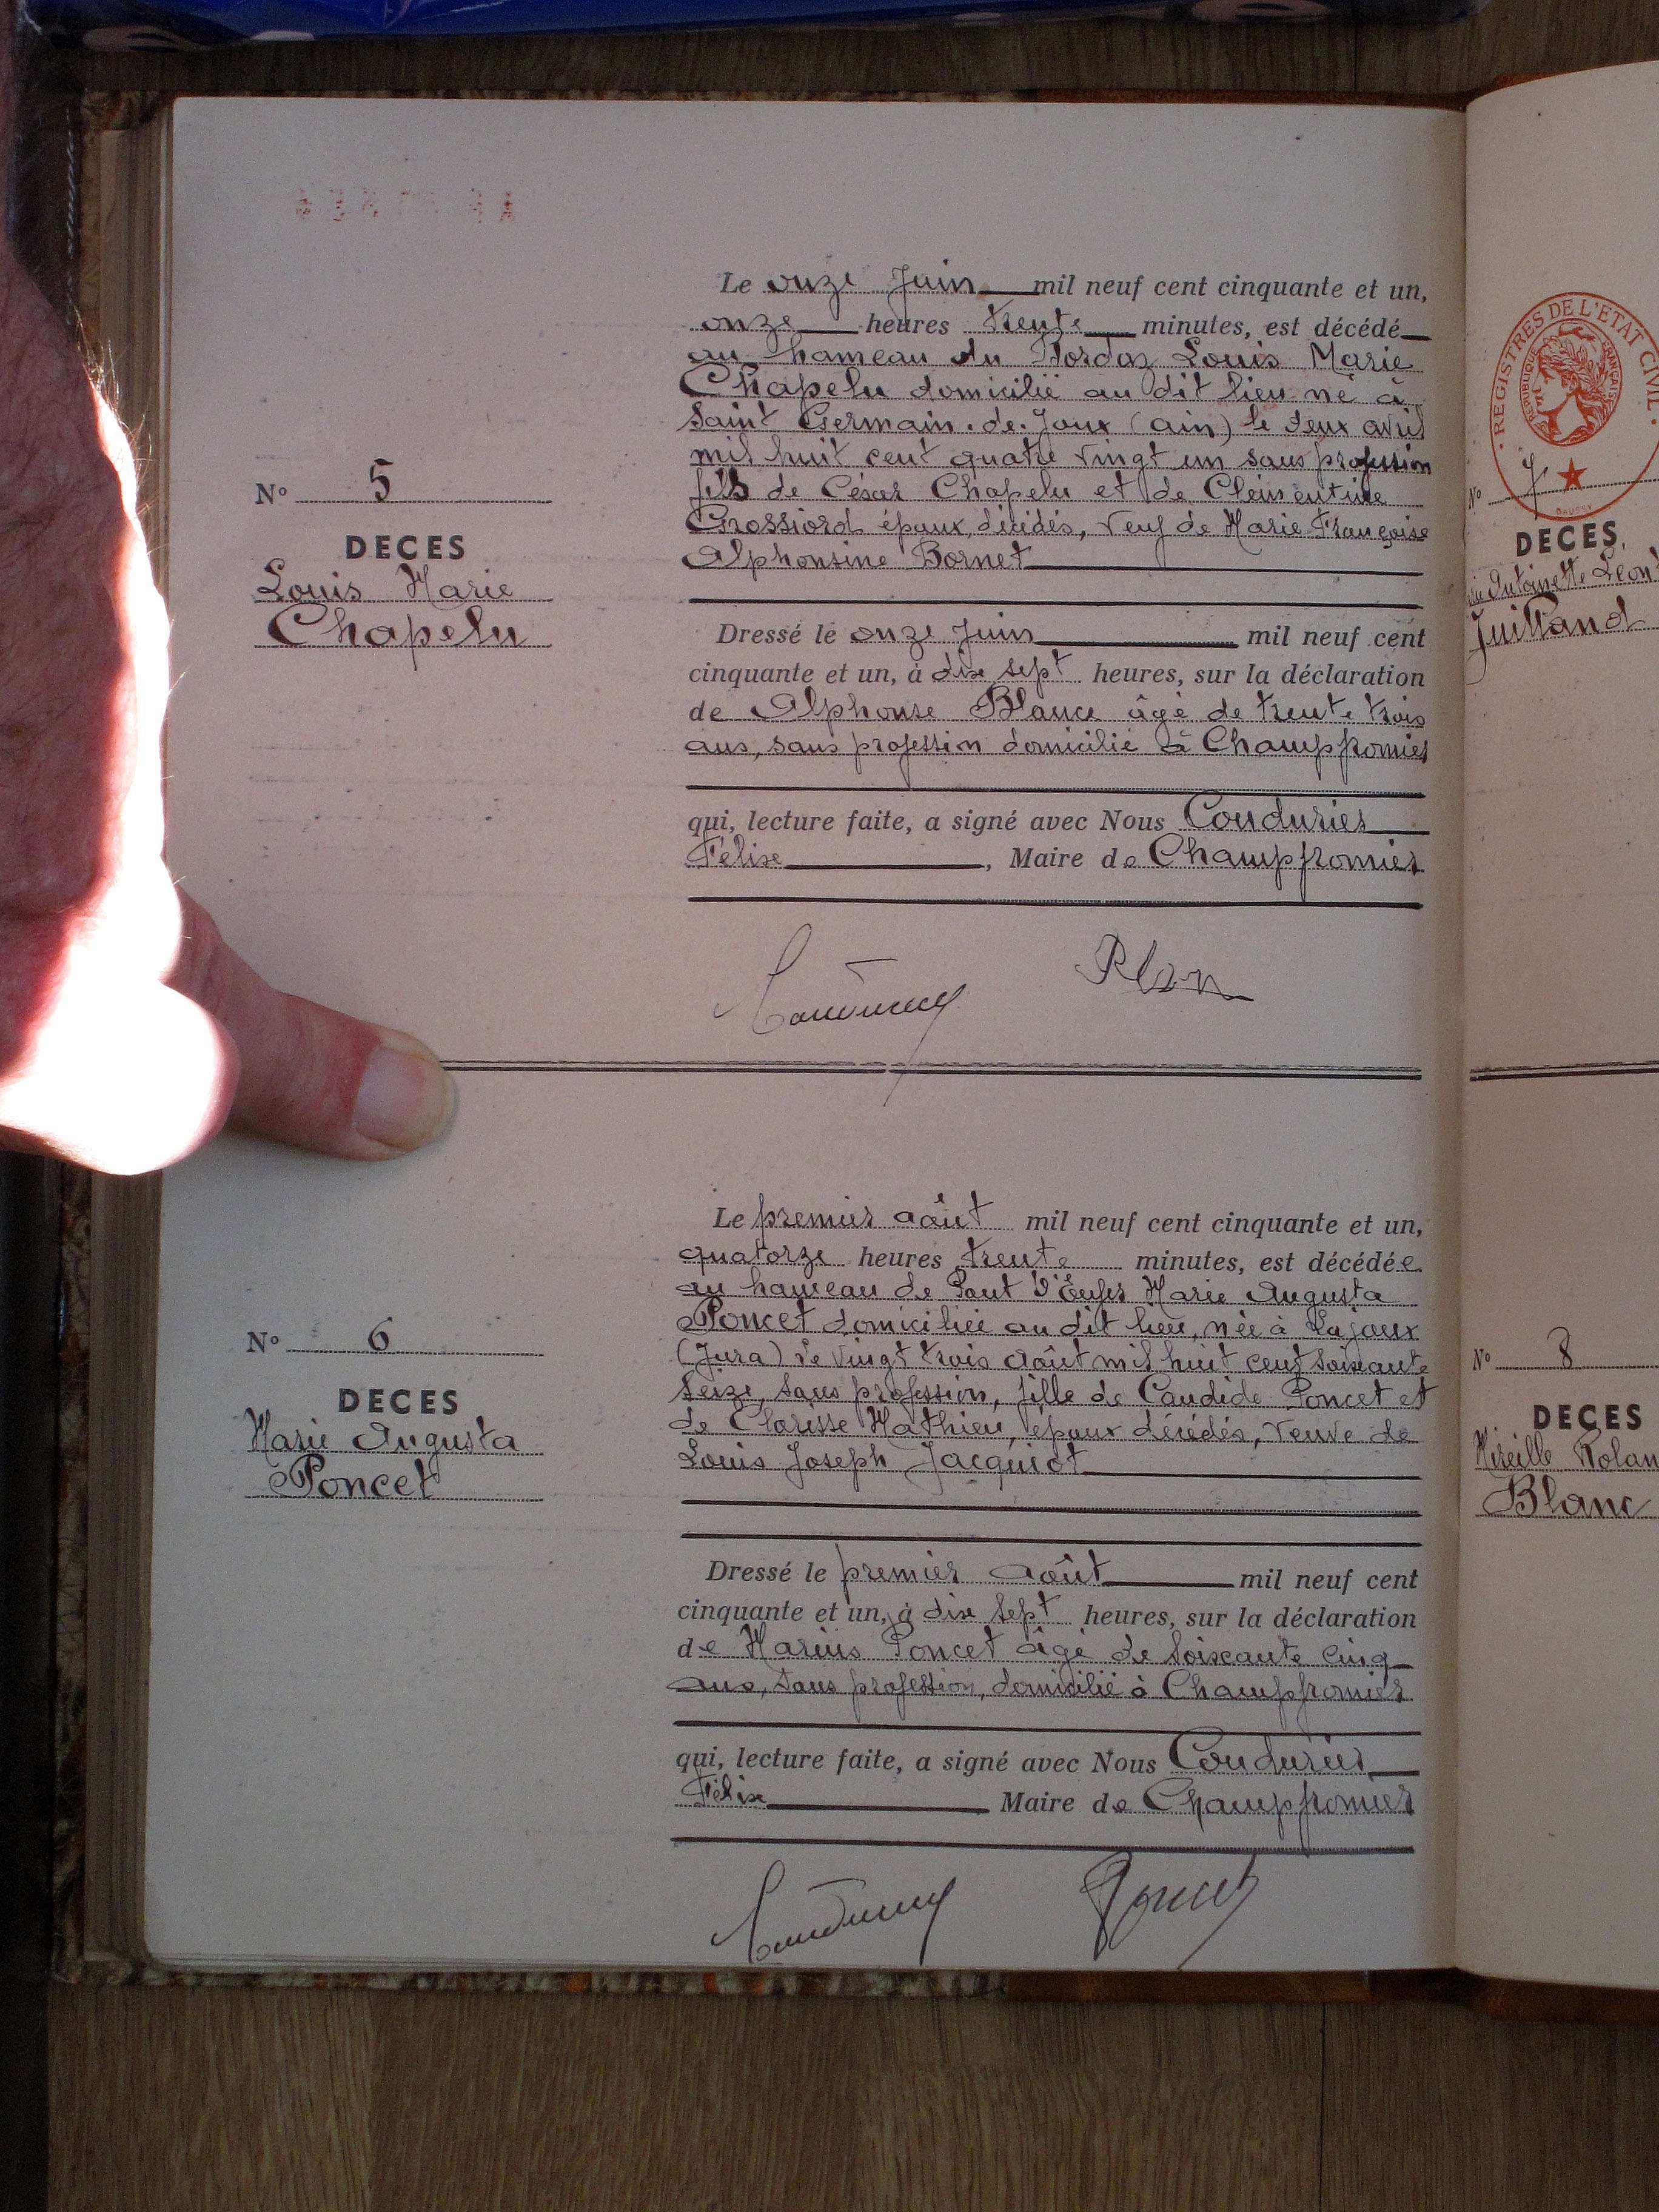 Le onze Juin mil neuf cent cinquante et un,
onze heures trente minutes, est décédé
au hameau du Louis Marie
Chapelu domicilié au dit lieu né à
Saint Germain.de.Joux (ain) le deux avril
mil huit cent quatre vingt un sans profession
fils de César Chapelu et de Clémentine
Grossiord époux décédés, veuf de Marie Françoise
Alphonsine Bornet
N° 5
DECES
Louis Marie
Chapelu
Dressé le onze Juin mil neuf cent
cinquante et un, à dix sept heures, sur la déclaration
de Alphonse Blanc âgé de trente trois
ans, sans profession domicilié à Champfromier
qui, lecture faite, a signé avec Nous Coudurier
Félix, Maire de Champfromier
Le premier août mil neuf cent cinquante et un,
quatorze heures trente minutes, est décédée
au hameau de Pont d'Enfer Marie Augusta
Poncet domiciliée au dit lieu, née à Lajoux
(Jura) le vingt trois août mil huit cent soixante
seize, sans profession, fille de Candide Poncet et
de Clarisse Mathieu, époux décédés, veuve de
Louis Joseph Jacquiot
N° 6
DECES
Marie Augusta
Poncet
Dressé le premier août mil neuf cent
cinquante et un, à dix sept heures, sur la déclaration
de Marius Poncet âgé de soixante cinq
ans, sans profession, domicilié à Champfromier
qui, lecture faite, a signé avec Nous Coudurier
Félix Maire de Champfromier
Poncet
REGISTRES DE L'ETAT CIVIL
REPUBLIQUE FRANÇAISE
N° 7
DAUSSY
DECES
Antoinette Léon
Juilland
N° 8
DECES
Mireille Rolan
Blanc